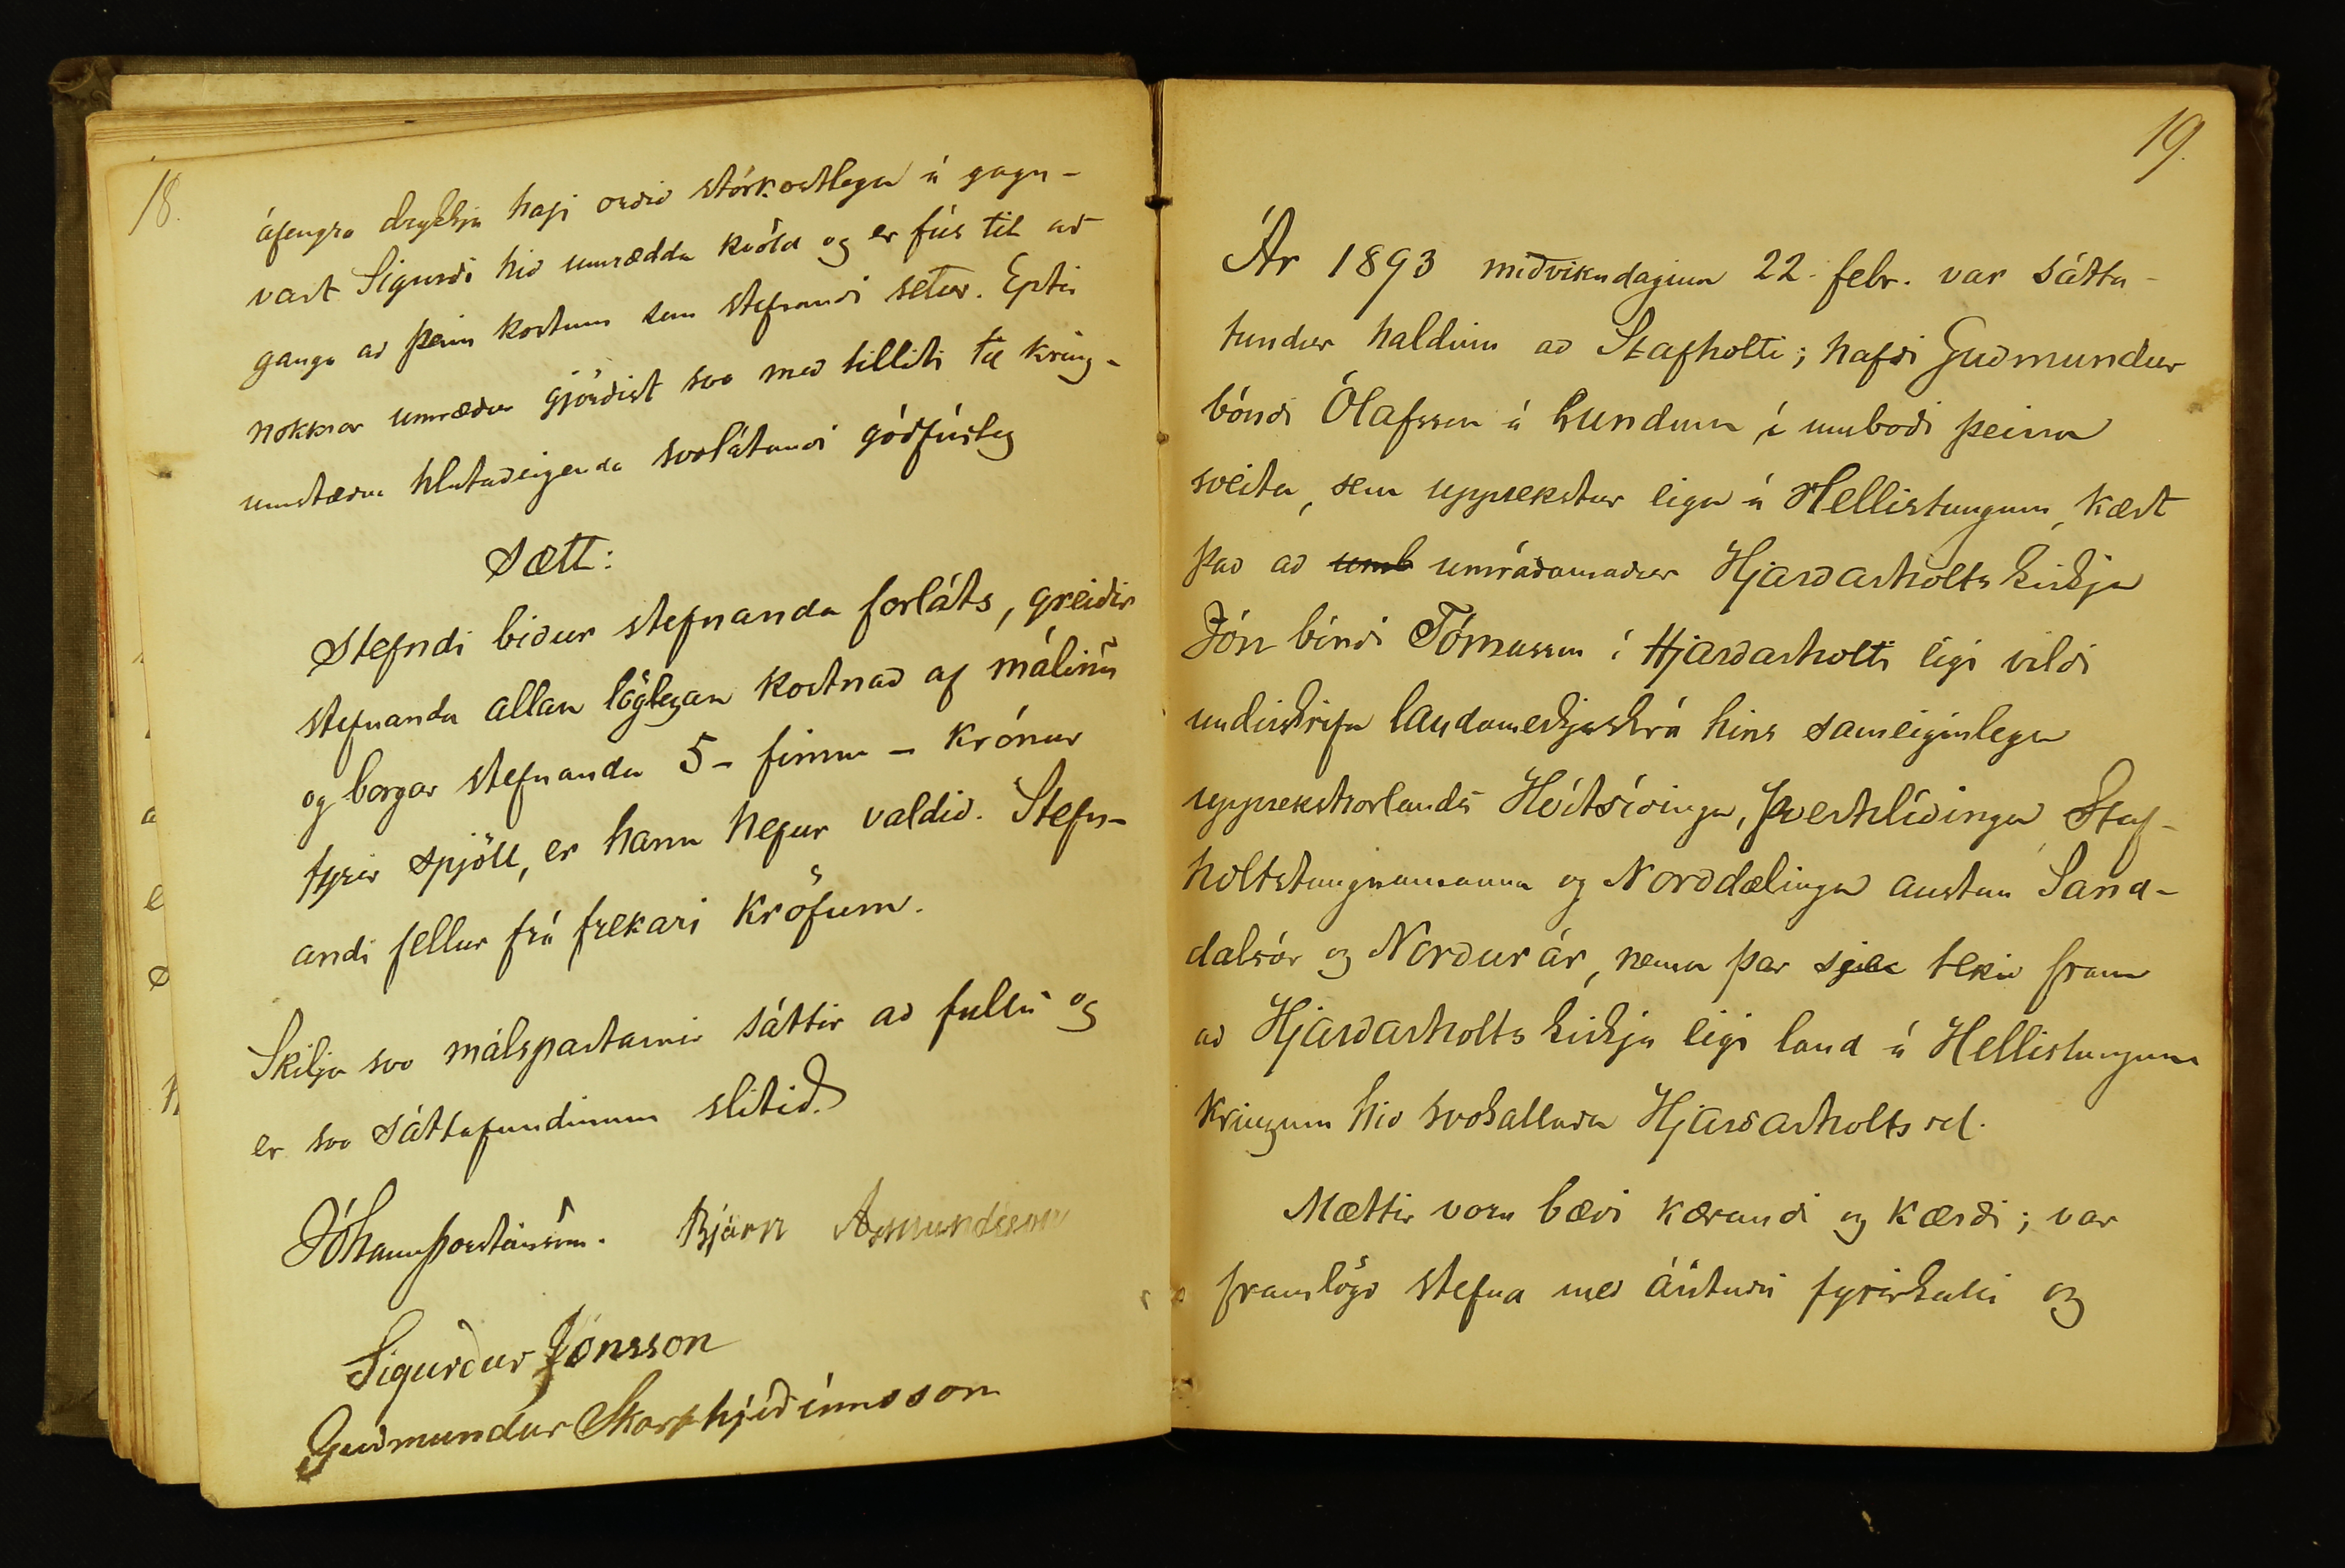 18.
áfengra drykkja hafi orðið stórkostlega á gagn-
vart Sigurði hið umrædda kvöld og er fús til að
ganga að þeim kostum sem stefnandi setur. Eptir
nokkrar umræður gjörðist svo með tilliti til kring-
umstæðna hlutaðeigenda svolátandi góðfúsleg
Sætt:
Stefndi biður stefnanda forláts, greiðir
stefnanda allan löglegan kostnað af málinu
og borgar stefnanda 5 - fimm - krónur
fyrir spjöll, er hann hefur valdið. Stefn-
andi fellur frá frekari kröfum.
Skilja svo málspartarnir sáttir að fullu og
er svo sáttafundinum slitið.
Jóhann Þorsteinsson. Bjarn Asmundsson
Sigurður Jónsson
Guðmundur Skarphjeðinnsson
19.
Ár 1893 miðvikudaginn 22. febr. var sátta-
fundur haldinn að Stafholti; hafði Guðmundur
bóndi Ólafsson á Lundum í umboði þeirra
sveita, sem upprekstur eiga á Hellistungum, kært
það að umb umráðamaður Hjarðarholts kirkju
Jón bóndi Tómasson í Hjarðarholti eigi vildi
undirskrifa landamerkjaskrá hins sameiginlega
upprekstrarlands Hvítsíðinga, Þverhlíðinga, Staf-
holtstungnamanna og Norðdælinga austan Sand-
dalsár og Norðurár, nema þar sje tekið fram
að Hjarðarholts kirkja eigi land á Hellistungum
kringum hið svokallaða Hjarðarholtssel.
Mættir voru bæði kærandi og kærði; var
framlögð stefna með árituðu fyrirkalli og